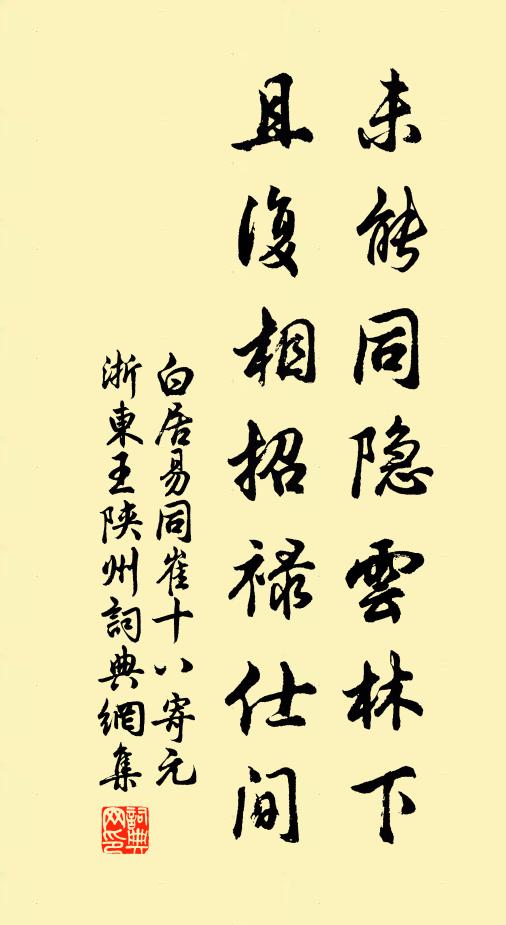 未能同隐雲林下
且復相招禄仕间
白居易同崔十八寄元
浙東王陝州詞典網集
詞典
网印